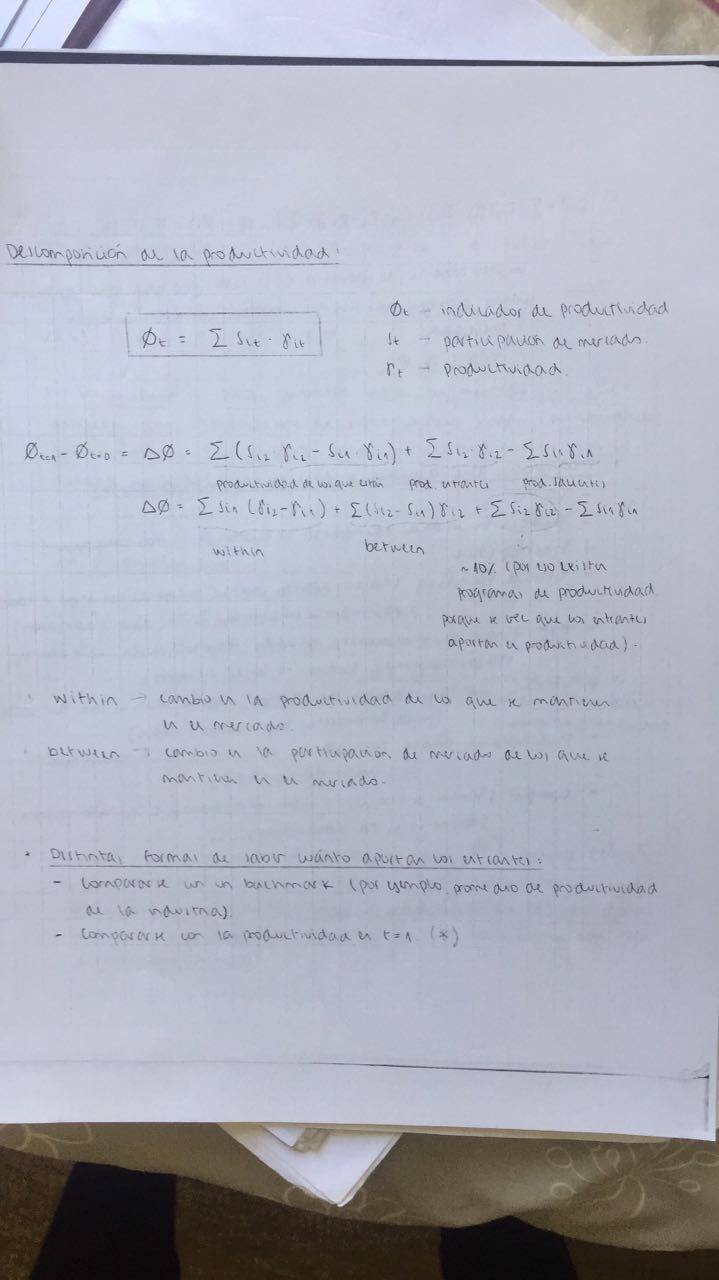 Descomposición de la productividad:
Øt = Σ Sit · γit
Øt → indicador de productividad
St → participación de mercado.
γt → productividad.
Øt=1 - Øt=0 = ΔØ = Σ(Si2 γi2 - Si1 γi1) + Σ Si2 γi2 - Σ Si1 γi1
productividad de los que están prod. entrantes prod. salientes
ΔØ = Σ Si1 (γi2 - γi1) + Σ(Si2 - Si1) γi2 + Σ Si2 γi2 - Σ Si1 γi1
within between
~10% (por eso existen
programas de productividad
porque se vee que los entrantes
aportan en productividad).
· within → cambio en la productividad de los que se mantienen
en el mercado.
· between → cambio en la participación de mercado de los que se
mantienen en el mercado.
· Distintas formas de saber cuánto aportan los entrantes:
- Compararse con un bechmark (por ejemplo, promedio de productividad
de la industria).
- Compararse con la productividad en t=1. (*)